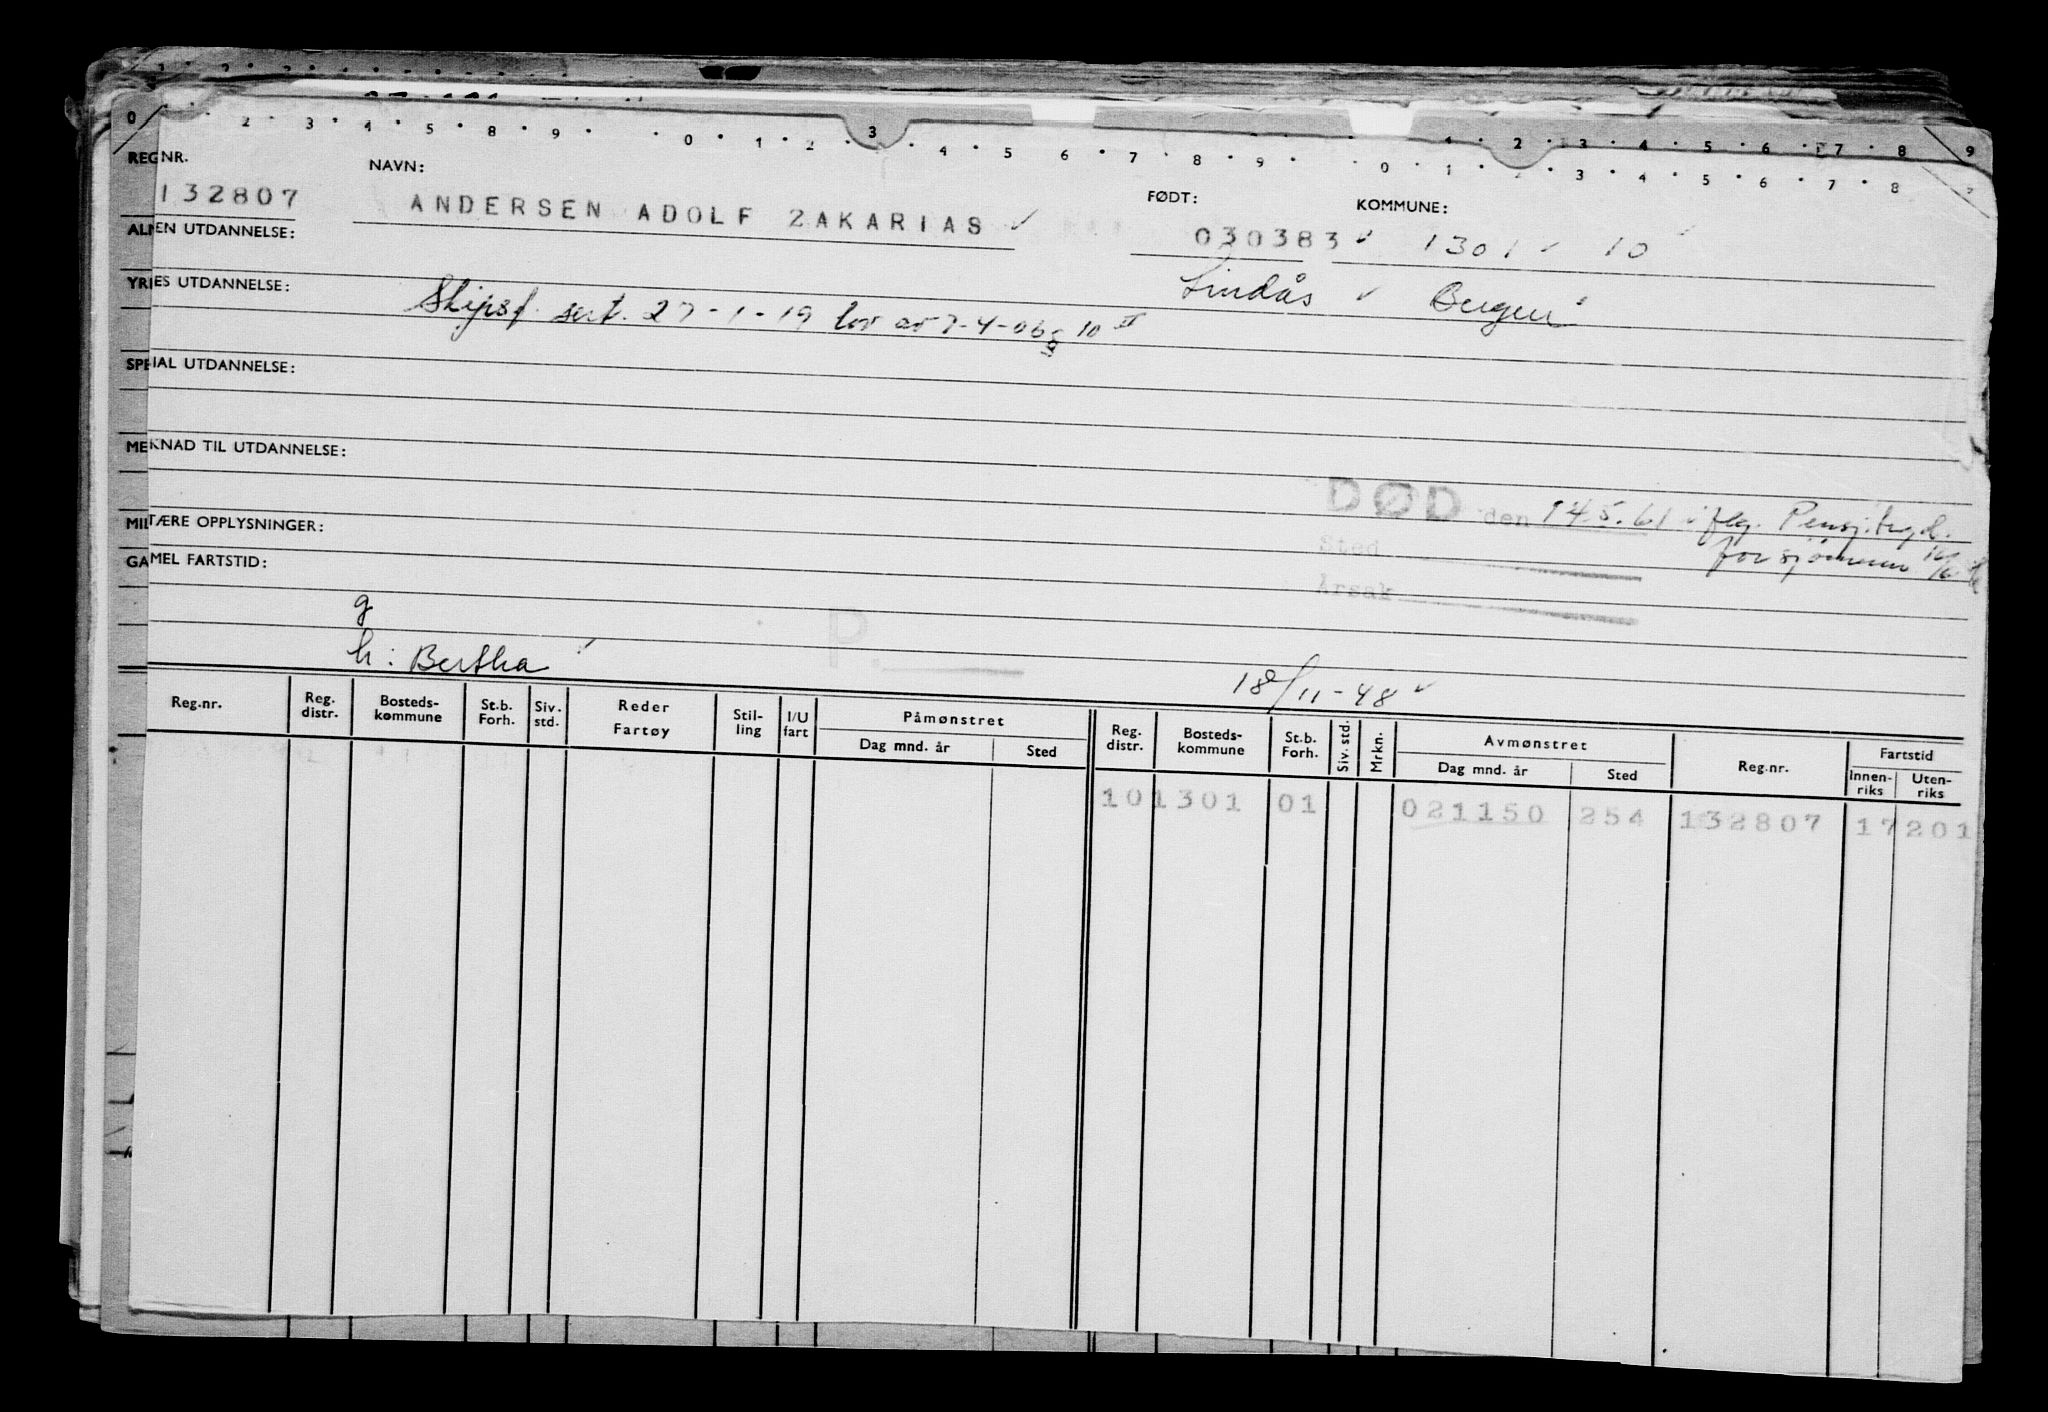 0 2 3 4 5 8 9 0 1 2 3 4 5 6 7 8 9 0 1 2 3 4 5 6 7 8 9
REGNR. NAVN: FØDT: KOMMUNE:
132807 ANDERSEN ADOLF ZAKARIAS ✓ 030383 ✓ 1301 ✓ 10 ✓
ALMEN UTDANNELSE: Lindås ✓ Bergen
YRKES UTDANNELSE: Skipsf. sert. 27-1-19 lov av 7-4-06 § 10 II
SPESIAL UTDANNELSE:
MERKNAD TIL UTDANNELSE:
DØD den 14.5.61 iflg. Pensj.trygd.
for sjömenn
MILITÆRE OPPLYSNINGER:
Sted
GAMMEL FARTSTID:
Årsak
g P.
h: Bertha 18/11-48 ✓
Reg.nr. Reg. distr. Bosteds-kommune St.b. Forh. Siv. std. Reder Fartøy Stil-ling I/U fart Påmønstret Dag mnd. år Sted Reg. distr. Bosteds-kommune St.b. Forh. Siv. std. Mrkn. Avmønstret Dag mnd. år Sted Reg.nr. Fartstid Innen-riks Uten-riks
10 1301 01 021150 254 132807 17 201